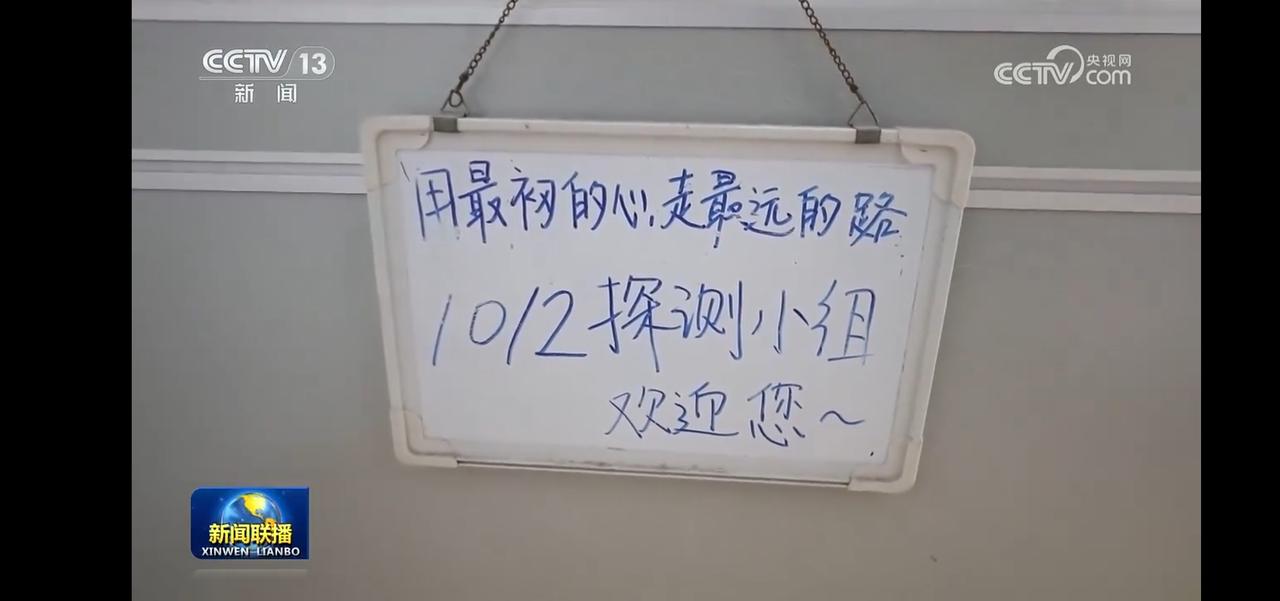 CCTV 13
新闻
央视网
CCTV.com
用最初的心,走最远的路
1012探测小组
欢迎您~
新闻联播
XINWEN-LIANBO